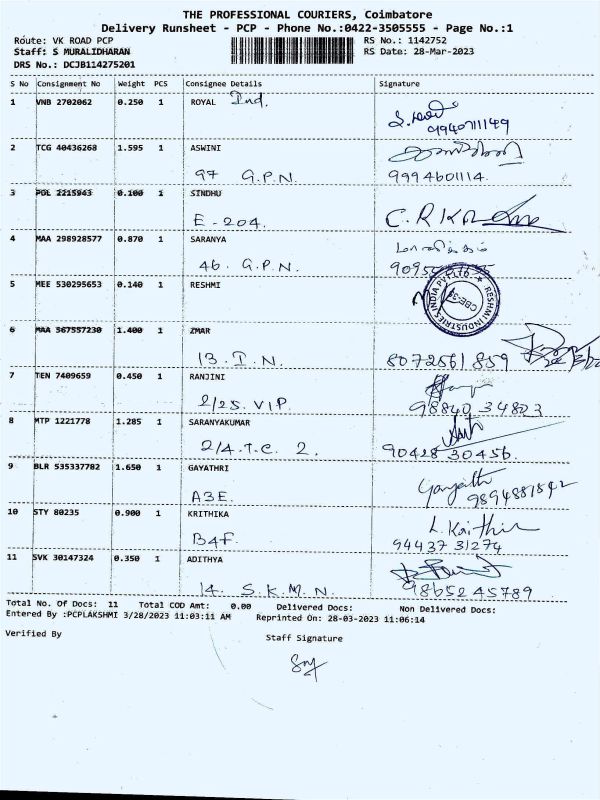 THE PROFESSIONAL COURIERS, Coimbatore
Delivery Runsheet - PCP - Phone No.:0422-3505555 - Page No.:1
Route: VK ROAD PCP RS No.: 1142752
Staff: S MURALIDHARAN RS Date: 28-Mar-2023
DRS No.: DCJB114275201
S No Consignment No Weight PCS Consignee Details Signature
1 VNB 2702062 0.250 1 ROYAL Ind.
9940711149
2 TCG 40436268 1.595 1 ASWINI
97 G.P.N. 9994601114.
3 POL 2215943 0.100 1 SINDHU
E-204.
4 MAA 298928577 0.870 1 SARANYA
46. G.P.N.
5 MEE 530295653 0.140 1 RESHMI
RESHMI INDUSTRIES INDIA PVT LTD
6 MAA 367557230 1.400 1 ZMAR
13. I.N. 8072561 859
7 TEN 7409659 0.450 1 RANJINI
2/25. VIP. 98840 34803
8 MTP 1221778 1.285 1 SARANYAKUMAR
2/4.T.C. 2. 90428 30456.
9 BLR 535337782 1.650 1 GAYATHRI
Gayathri
A3E. 9894881842
10 STY 80235 0.900 1 KRITHIKA
B4F. 94437 31274
11 SVK 30147324 0.350 1 ADITHYA
14. S.K.M.N. 98652 45789
Total No. Of Docs: 11 Total COD Amt: 0.00 Delivered Docs: Non Delivered Docs:
Entered By :PCPLAKSHMI 3/28/2023 11:03:11 AM Reprinted On: 28-03-2023 11:06:14
Verified By Staff Signature